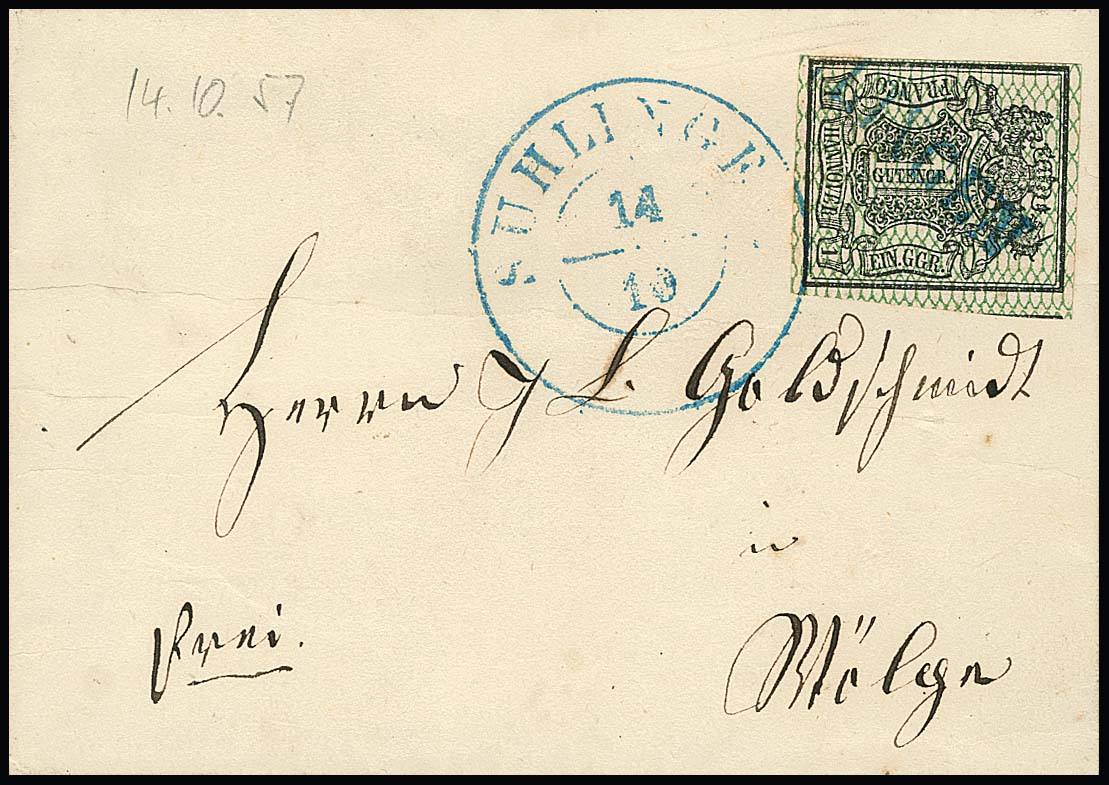 14.10.57
SUHLINGE
14
10
FRANCO
HANNOVER
1 GUTENGR. 1
EIN.GGR.
Herrn J L. Goldschmidt
in
frei.